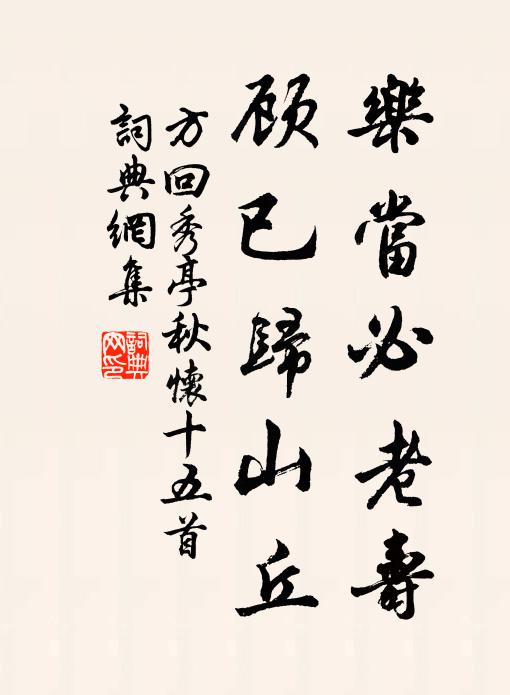 樂當必老壽
顧已歸山丘
方回秀亭秋懷十五首
詞典網集
詞典网印